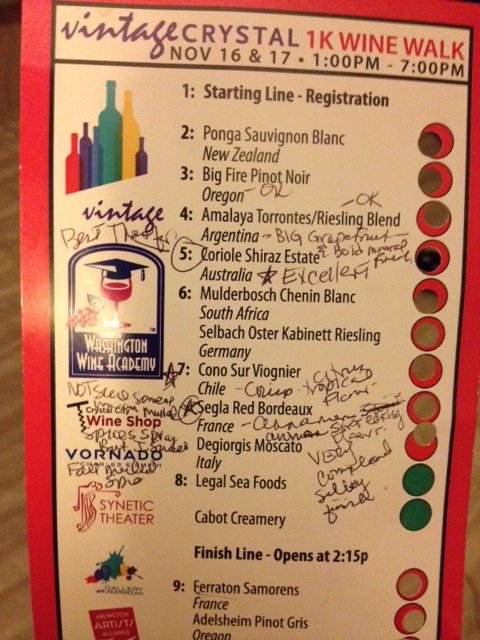 vintage CRYSTAL 1K WINE WALK
NOV 16 & 17 • 1:00PM - 7:00PM
1: Starting Line - Registration
2: Ponga Sauvignon Blanc
New Zealand
3: Big Fire Pinot Noir
Oregon - OK
- OK
vintage
4: Amalaya Torrontes/Riesling Blend
Argentina - BIG Grapefruit
& Bold mineral
Finish
Best
5: Coriole Shiraz Estate
Australia ★ Excellent
6: Mulderbosch Chenin Blanc
South Africa
Selbach Oster Kabinett Riesling
Germany
WASHINGTON
WINE ACADEMY
7: Cono Sur Viognier
Chile - Crisp tropical
citrus
Segla Red Bordeaux
France - Cinnamon
Very
silky
finish
Crystal City
Wine Shop
Degiorgis Moscato
Italy
VORNADO
8: Legal Sea Foods
SYNETIC
THEATER
Cabot Creamery
Finish Line - Opens at 2:15p
GALLERY
UNDERGROUND
9: Ferraton Samorens
France
ARLINGTON
ARTISTS
ALLIANCE
Adelsheim Pinot Gris
Oregon